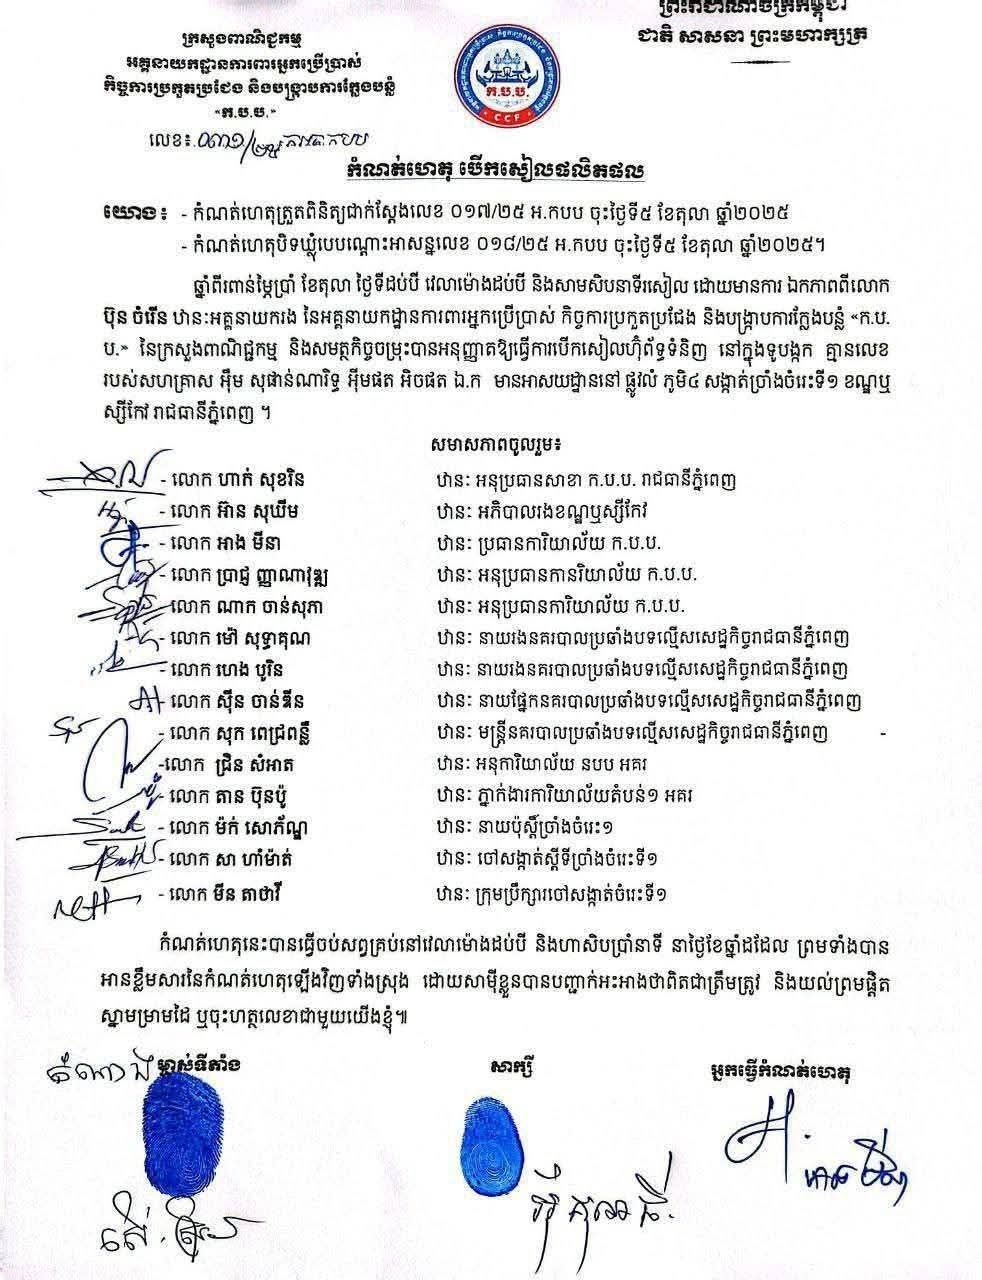 ព្រះរាជាណាចក្រកម្ពុជា
ជាតិ សាសនា ព្រះមហាក្សត្រ
ក្រសួងពាណិជ្ជកម្ម
អគ្គនាយកដ្ឋានការពារអ្នកប្រើប្រាស់
កិច្ចការប្រកួតប្រជែង និងបង្ក្រាបការក្លែងបន្លំ
«ក.ប.ប.»
ក.ប.ប.
CCF
លេខ៖
កំណត់ហេតុ បើកសៀលផលិតផល
យោង៖ - កំណត់ហេតុត្រួតពិនិត្យជាក់ស្តែងលេខ ០១៧/២៥ អ.កបប ចុះថ្ងៃទី៥ ខែតុលា ឆ្នាំ២០២៥
- កំណត់ហេតុបិទឃ្លុំបបណ្តោះអាសន្នលេខ ០១៨/២៥ អ.កបប ចុះថ្ងៃទី៥ ខែតុលា ឆ្នាំ២០២៥។
ឆ្នាំពីរពាន់ម្ភៃប្រាំ ខែតុលា ថ្ងៃទីដប់បី វេលាម៉ោងដប់បី និងសាមសិបនាទីរសៀល ដោយមានការ ឯកភាពពីលោក
ប៊ុន ចំរើន ឋានៈអគ្គនាយករង នៃអគ្គនាយកដ្ឋានការពារអ្នកប្រើប្រាស់ កិច្ចការប្រកួតប្រជែង និងបង្ក្រាបការក្លែងបន្លំ «ក.ប.
ប.» នៃក្រសួងពាណិជ្ជកម្ម និងសមត្ថកិច្ចចម្រុះបានអនុញ្ញាតឱ្យធ្វើការបើកសៀលហ៊ុំព័ទ្ធទំនិញ នៅក្នុងទូបង្កក គ្មានលេខ
របស់សហគ្រាស អ៊ឹម សុផាន់ណារិទ្ធ អ៊ីមផត អិចផត ឯ.ក មានអាសយដ្ឋាននៅ ផ្លូវលំ ភូមិ៤ សង្កាត់ច្រាំងចំរេះទី១ ខណ្ឌឬ
ស្សីកែវ រាជធានីភ្នំពេញ ។
សមាសភាពចូលរួម៖
- លោក ហាក់ សុខរិន ឋានៈ អនុប្រធានសាខា ក.ប.ប. រាជធានីភ្នំពេញ
- លោក អ៊ាន សុឃីម ឋានៈ អភិបាលរងខណ្ឌឬស្សីកែវ
- លោក អាង មីនា ឋានៈ ប្រធានការិយាល័យ ក.ប.ប.
- លោក ប្រាជ្ញ ញាណាវុឌ្ឍ ឋានៈ អនុប្រធានកានរិយាល័យ ក.ប.ប.
- លោក ណាក ចាន់សុភា ឋានៈ អនុប្រធានការិយាល័យ ក.ប.ប.
- លោក ម៉ៅ សុទ្ធាគុណ ឋានៈ នាយរងនគរបាលប្រឆាំងបទល្មើសសេដ្ឋកិច្ចរាជធានីភ្នំពេញ
- លោក ហេង បូរិន ឋានៈ នាយរងនគរបាលប្រឆាំងបទល្មើសសេដ្ឋកិច្ចរាជធានីភ្នំពេញ
- លោក ស៊ីន ចាន់ឌីន ឋានៈ នាយផ្នែកនគរបាលប្រឆាំងបទល្មើសសេដ្ឋកិច្ចរាជធានីភ្នំពេញ
- លោក សុក ពេជ្រពន្លឺ ឋានៈ មន្ត្រីនគរបាលប្រឆាំងបទល្មើសសេដ្ឋកិច្ចរាជធានីភ្នំពេញ -
-លោក ជ្រិន សំអាត ឋានៈ អនុការិយាល័យ នបប អគរ
- លោក តាន ប៊ុនប៉ូ ឋានៈ ភ្នាក់ងារការិយាល័យតំបន់១ អគរ
- លោក ម៉ក់ សោភ័ណ្ឌ ឋានៈ នាយប៉ុស្តិ៍ច្រាំងចំរេះ១
- លោក សា ហាំម៉ាត់ ឋានៈ ចៅសង្កាត់ស្តីទីច្រាំងចំរេះទី១
- លោក មីន តាថាវី ឋានៈ ក្រុមប្រឹក្សារចៅសង្កាត់ចំរេះទី១
កំណត់ហេតុនេះបានធ្វើចប់សព្វគ្រប់នៅវេលាម៉ោងដប់បី និងហាសិបប្រាំនាទី នាថ្ងៃខែឆ្នាំដដែល ព្រមទាំងបាន
អានខ្លឹមសារនៃកំណត់ហេតុឡើងវិញទាំងស្រុង ដោយសាម៉ីខ្លួនបានបញ្ជាក់អះអាងថាពិតជាត្រឹមត្រូវ និងយល់ព្រមផ្តិត
ស្នាមម្រាមដៃ ឬចុះហត្ថលេខាជាមួយយើងខ្ញុំ៕
តំណាង ម្ចាស់ទីតាំង សាក្សី អ្នកធ្វើកំណត់ហេតុ
អាង មីនា